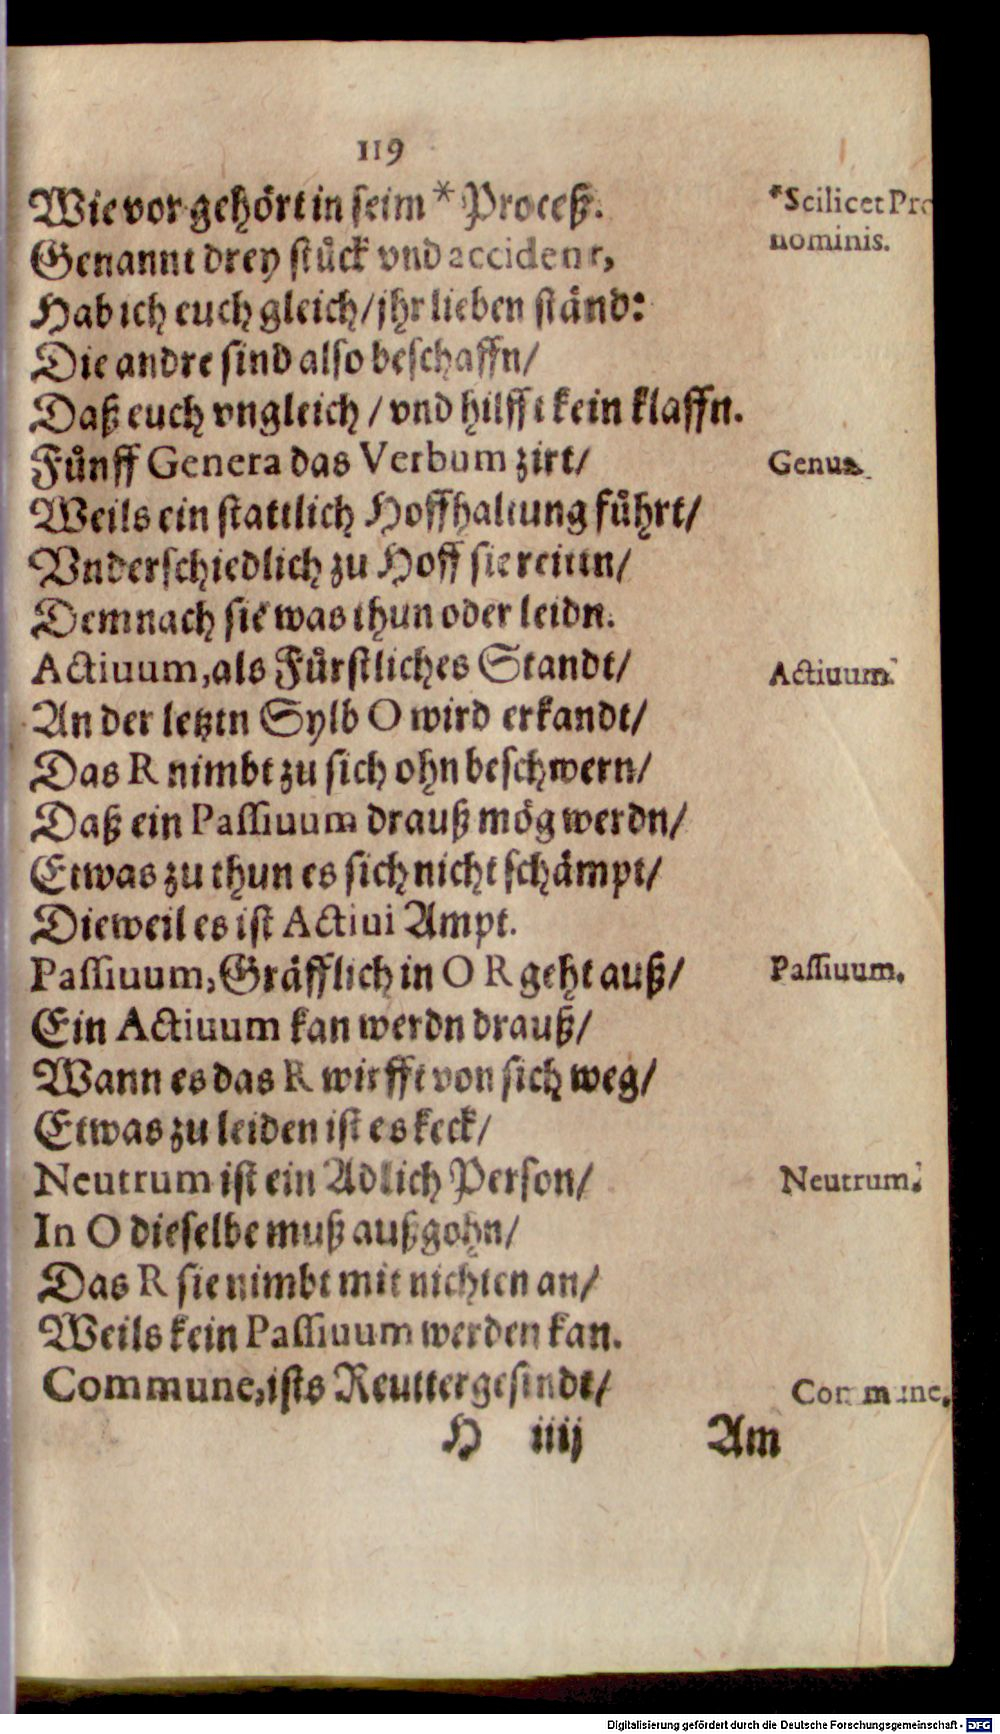 119
Wie vor gehört in seim * Proceß.
*Scilicet Pro
nominis.
Genannt drey stůck vnd accident,
Hab ich euch gleich / jhr lieben ständ:
Die andre sind also beschaffn /
Daß euch vngleich / vnd hilfft kein klaffn.
Fůnff Genera das Verbum zirt /
Genus.
Weils ein stattlich Hoffhaltung fůhrt /
Vnderschiedlich zu Hoff sie reittn /
Demnach sie was thun oder leidn.
Actiuum, als Fůrstliches Standt /
Actiuum.
An der letztn Sylb O wird erkandt /
Das R nimbt zu sich ohn beschwern /
Daß ein Passiuum drauß mög werdn /
Etwas zu thun es sich nicht schämpt /
Dieweil es ist Actiui Ampt.
Passiuum, Gräfflich in O R geht auß /
Passiuum.
Ein Actiuum kan werdn drauß /
Wann es das R wirfft von sich weg /
Etwas zu leiden ist es keck /
Neutrum ist ein Adlich Person /
Neutrum.
In O dieselbe muß außgohn /
Das R sie nimbt mit nichten an /
Weils kein Passiuum werden kan.
Commune, ists Reuttergesindt /
Commune.
H iiij Am
Digitalisierung gefördert durch die Deutsche Forschungsgemeinschaft - DFG